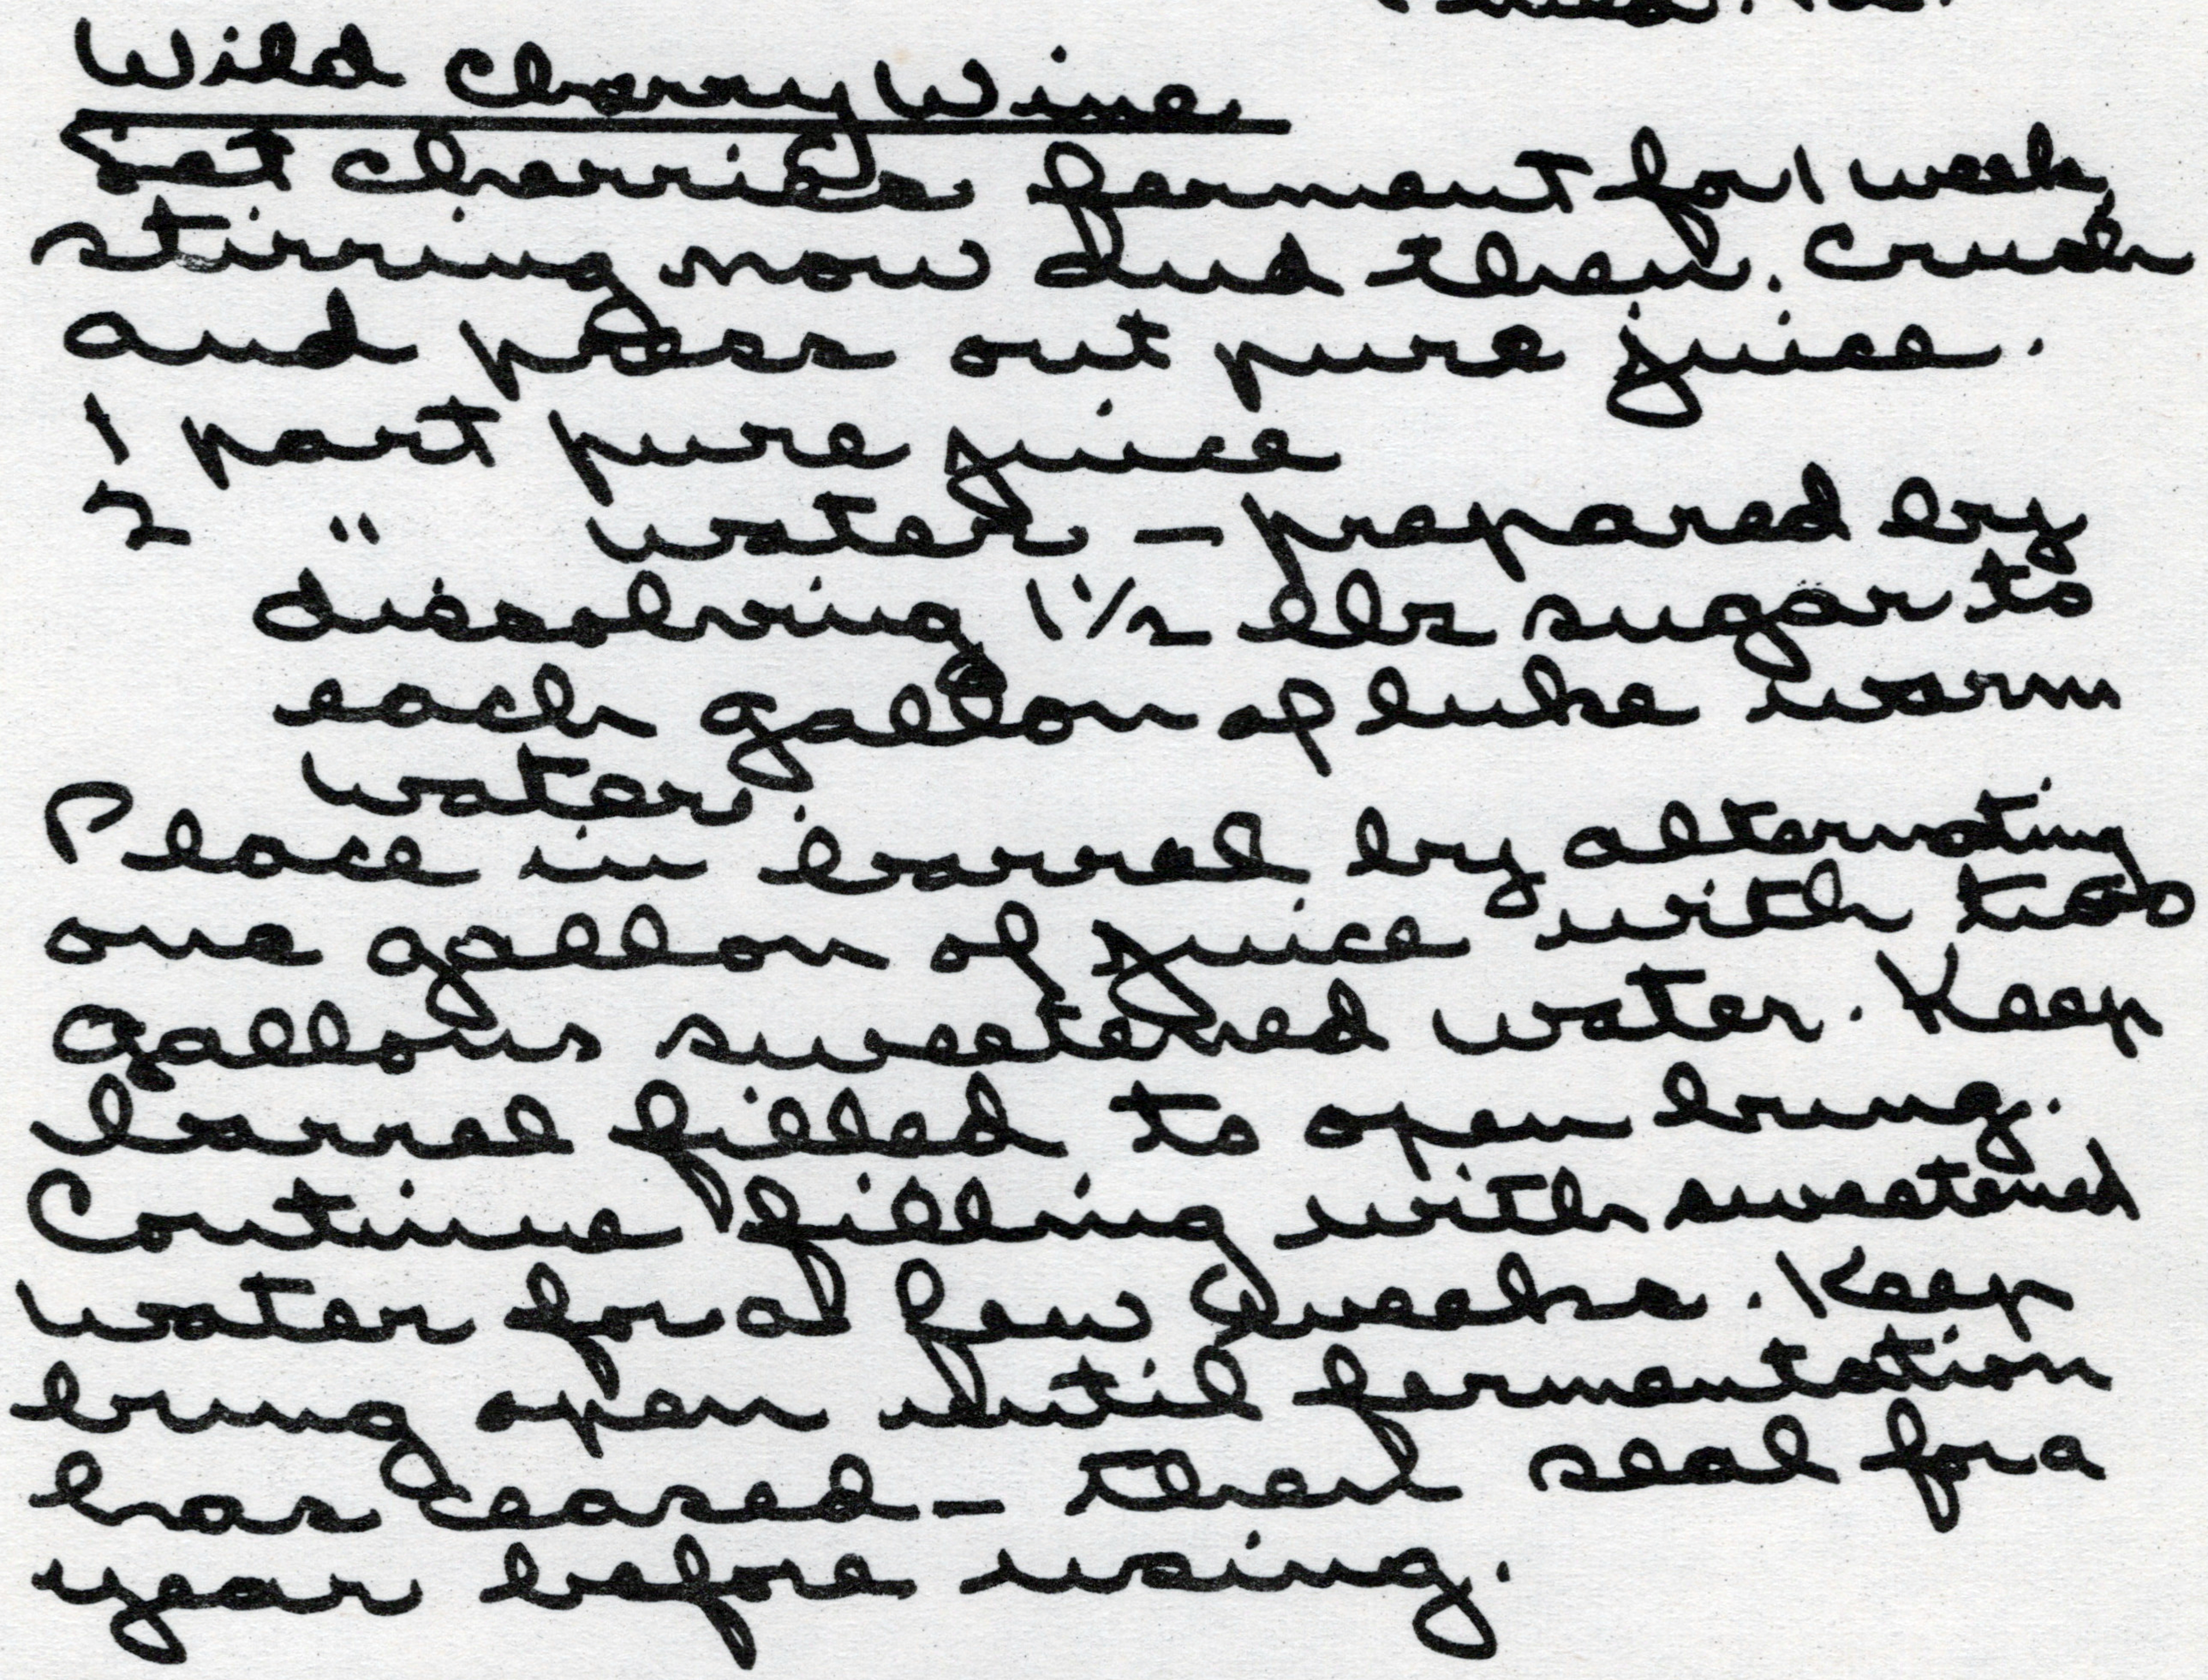 Wild Cherry Wine
Set cherries ferment for 1 week,
stirring now and then. Crush
and press out pure juice.
1 part pure juice
2 " water - prepared by
dissolving 1 1/2 lbs sugar to
each gallon of luke warm
water.
Place in barrel by alternating
one gallon of juice with two
gallons sweetened water. Keep
barrel filled to open bung.
Continue filling with sweetened
water for a few weeks. Keep
bung open until fermentation
has ceased - then seal for a
year before using.